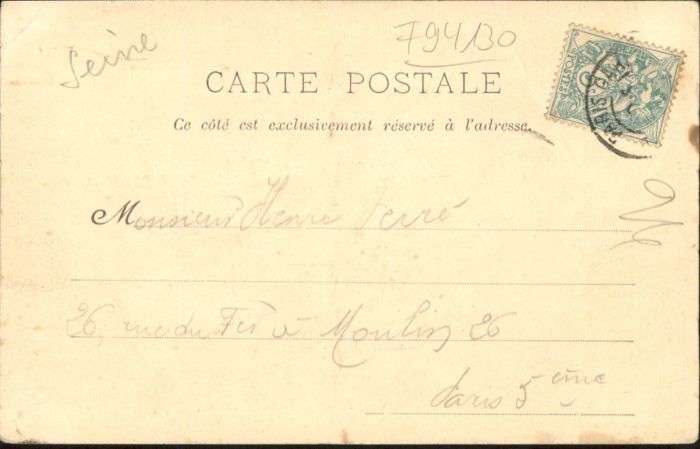 Seine
794130
CARTE POSTALE
Ce côté est exclusivement réservé à l'adresse.
PARIS
Monsieur Henri Ferré
26, rue du Fer à Moulin 26
Paris 5 ème